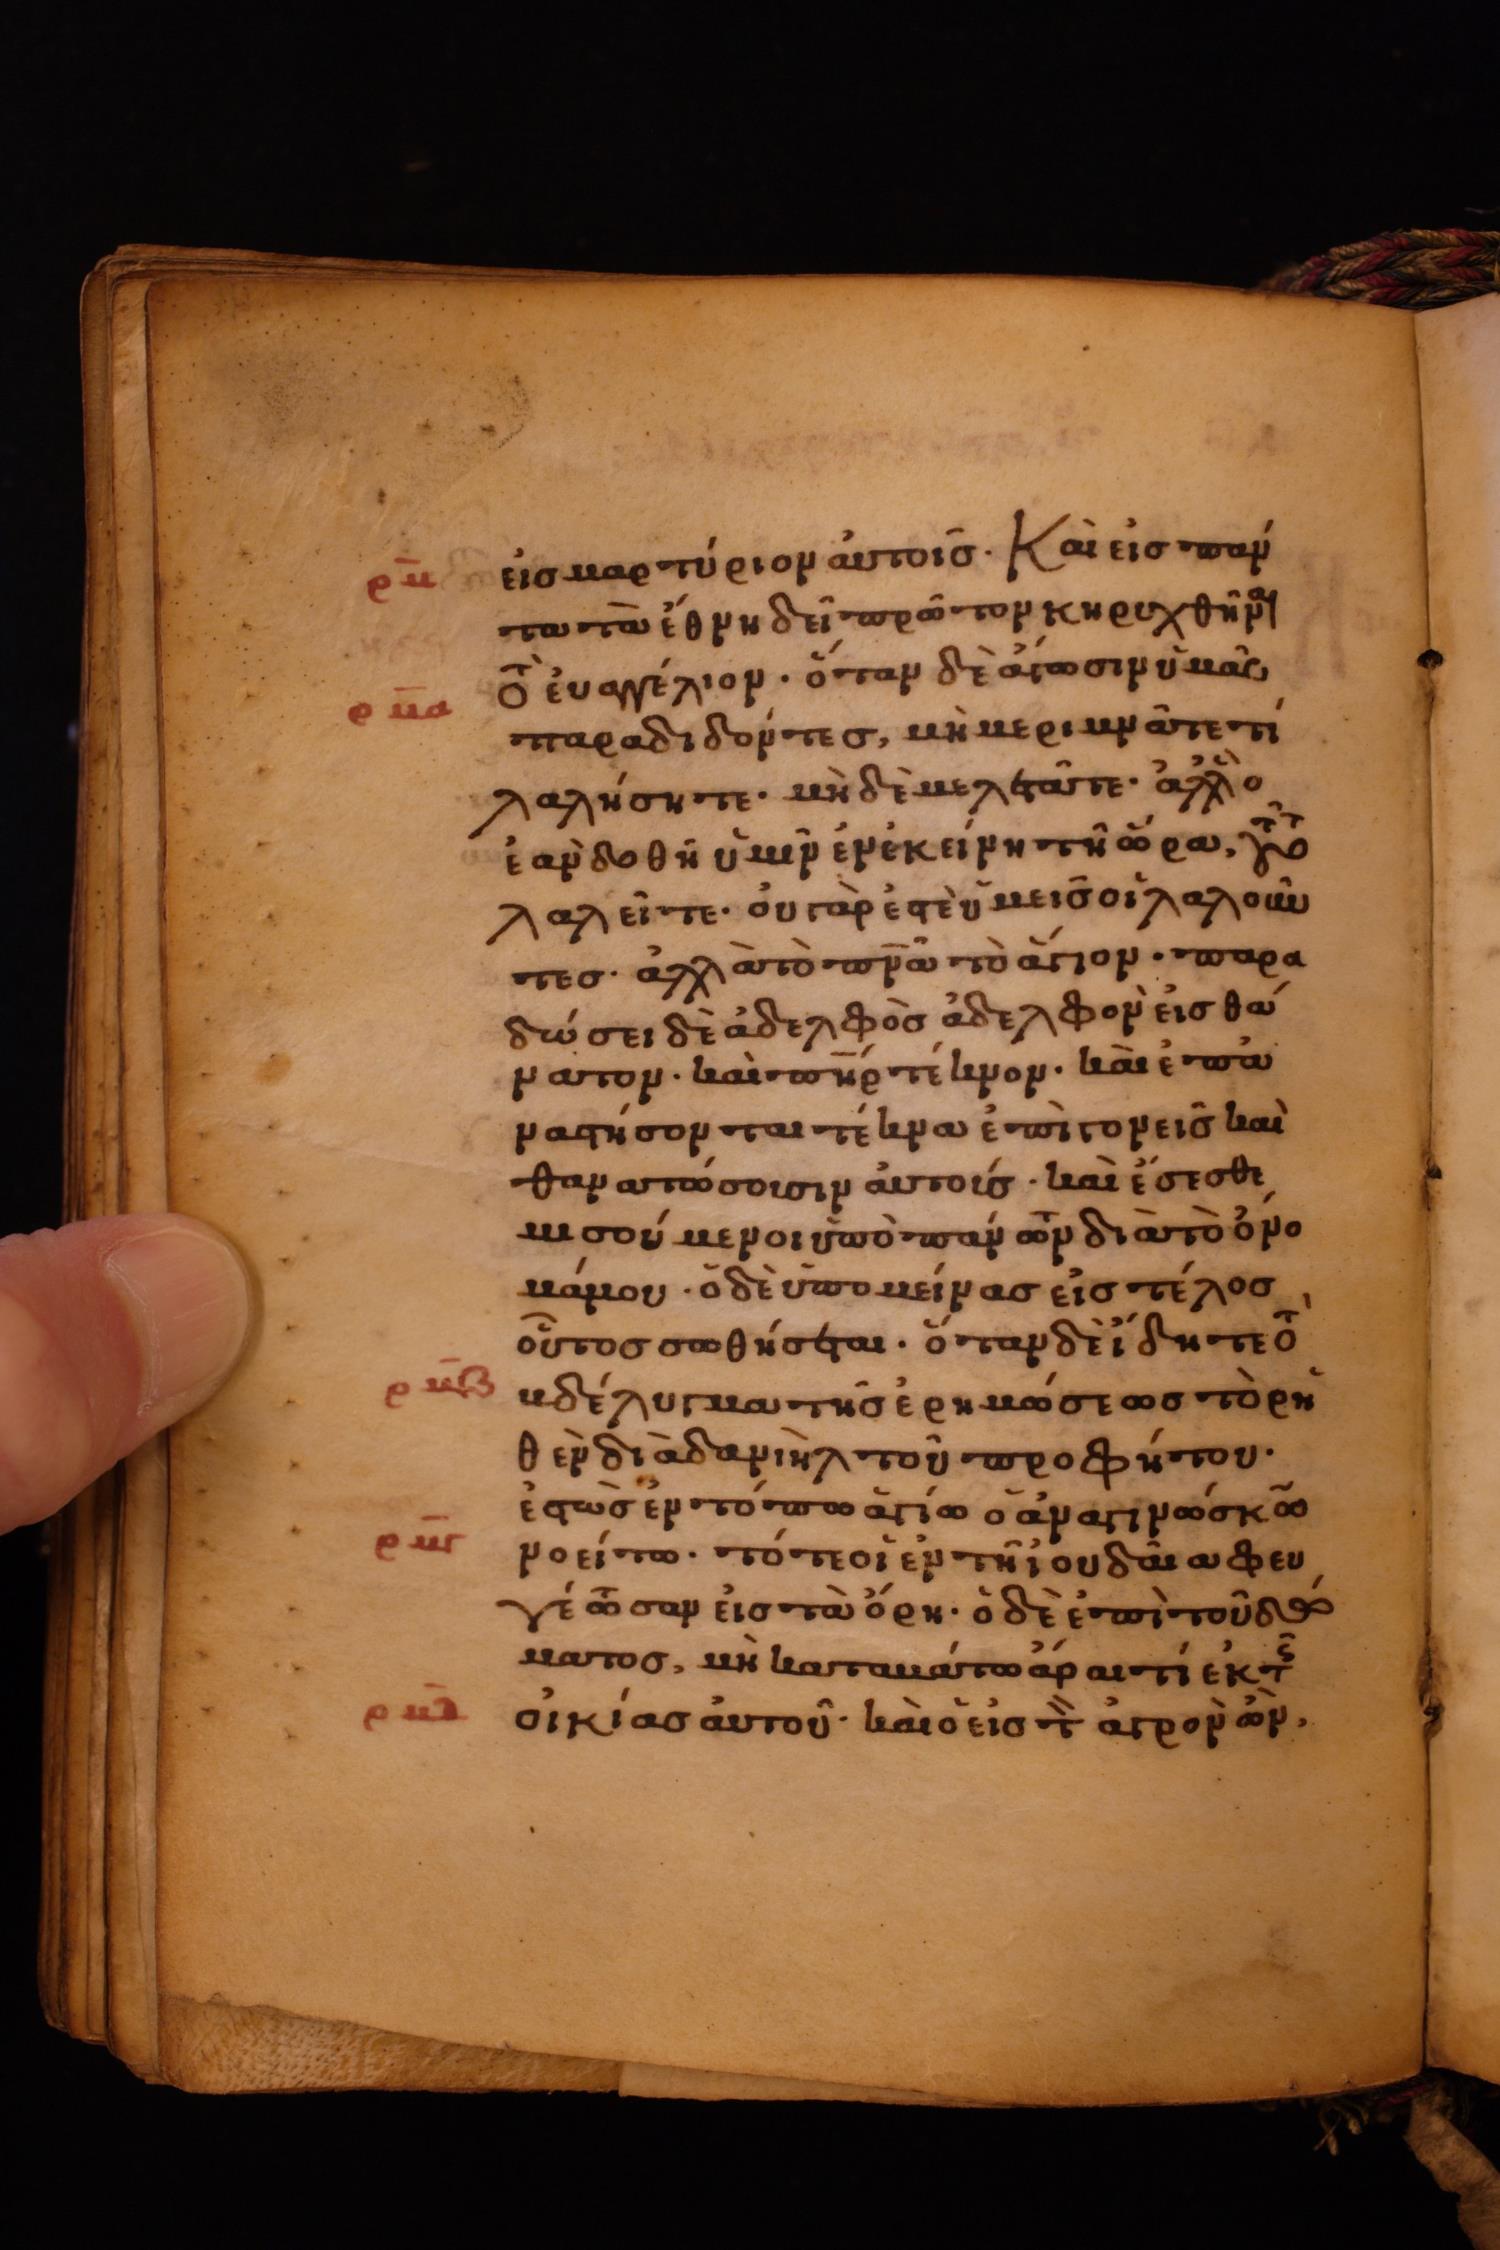 ρμ εἰς μαρτύριον ἀυτοῖς· Καὶ εἰς πάν
τα τὰ ἔθνη δεῖ πρῶτον κηρυχθῆναι
ρμα τὸ ἐυαγγέλιον· ὅταν δὲ ἄγωσιν ὑμᾶς
παραδιδόντες, μὴ μεριμνᾶτε τί
λαλήσητε· μὴ δὲ μελετᾶτε· ἀλλ' ὃ
ἐὰν δοθῆ ὑμῖν ἐν ἐκείνη τῆ ὥρα, τοῦτο
λαλεῖτε· ὀυ γὰρ ἐστὲ ὑμεῖς οἱ λαλοῦν
τες· ἀλλὰ τὸ πνα τὸ ἅγιον· παρα
δώσει δὲ ἀδελφὸς ἀδελφὸν εἰς θά
νατον· καὶ πηρ τέκνον· καὶ ἐπα
ναστήσονται τέκνα ἐπὶ γονεῖς καὶ
θανατώσουσιν ἀυτούς· καὶ ἔσεσθε
μισούμενοι ὑπὸ πάντων διὰ τὸ ὄνο
μά μου· ὁ δὲ ὑπομείνας εἰς τέλος,
οὗτος σωθήσεται· ὅταν δὲ ἴδητε τὸ
ρμβ βδέλυγμα τῆς ἐρημώσεως τὸ ρη
θὲν διὰ δανιὴλ τοῦ προφήτου·
ἐστὼς ἐν τόπω ἁγίω ὁ ἀναγινώσκων
ρμγ νοείτω· τότε οἱ ἐν τῆ ἰουδαία φευ
γέτωσαν εἰς τὰ ὄρη· ὁ δὲ ἐπὶ τοῦ δώ
ματος, μὴ καταβάτω ἆραι τί ἐκ τῆς
ρμδ οἰκίας ἀυτοῦ· καὶ ὁ εἰς τὸν ἀγρὸν ὢν,